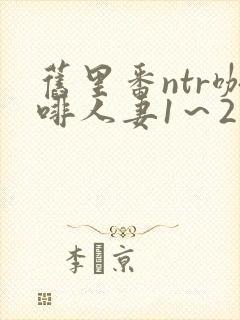 舊里番ntr咖
啡人妻1～2
李 京